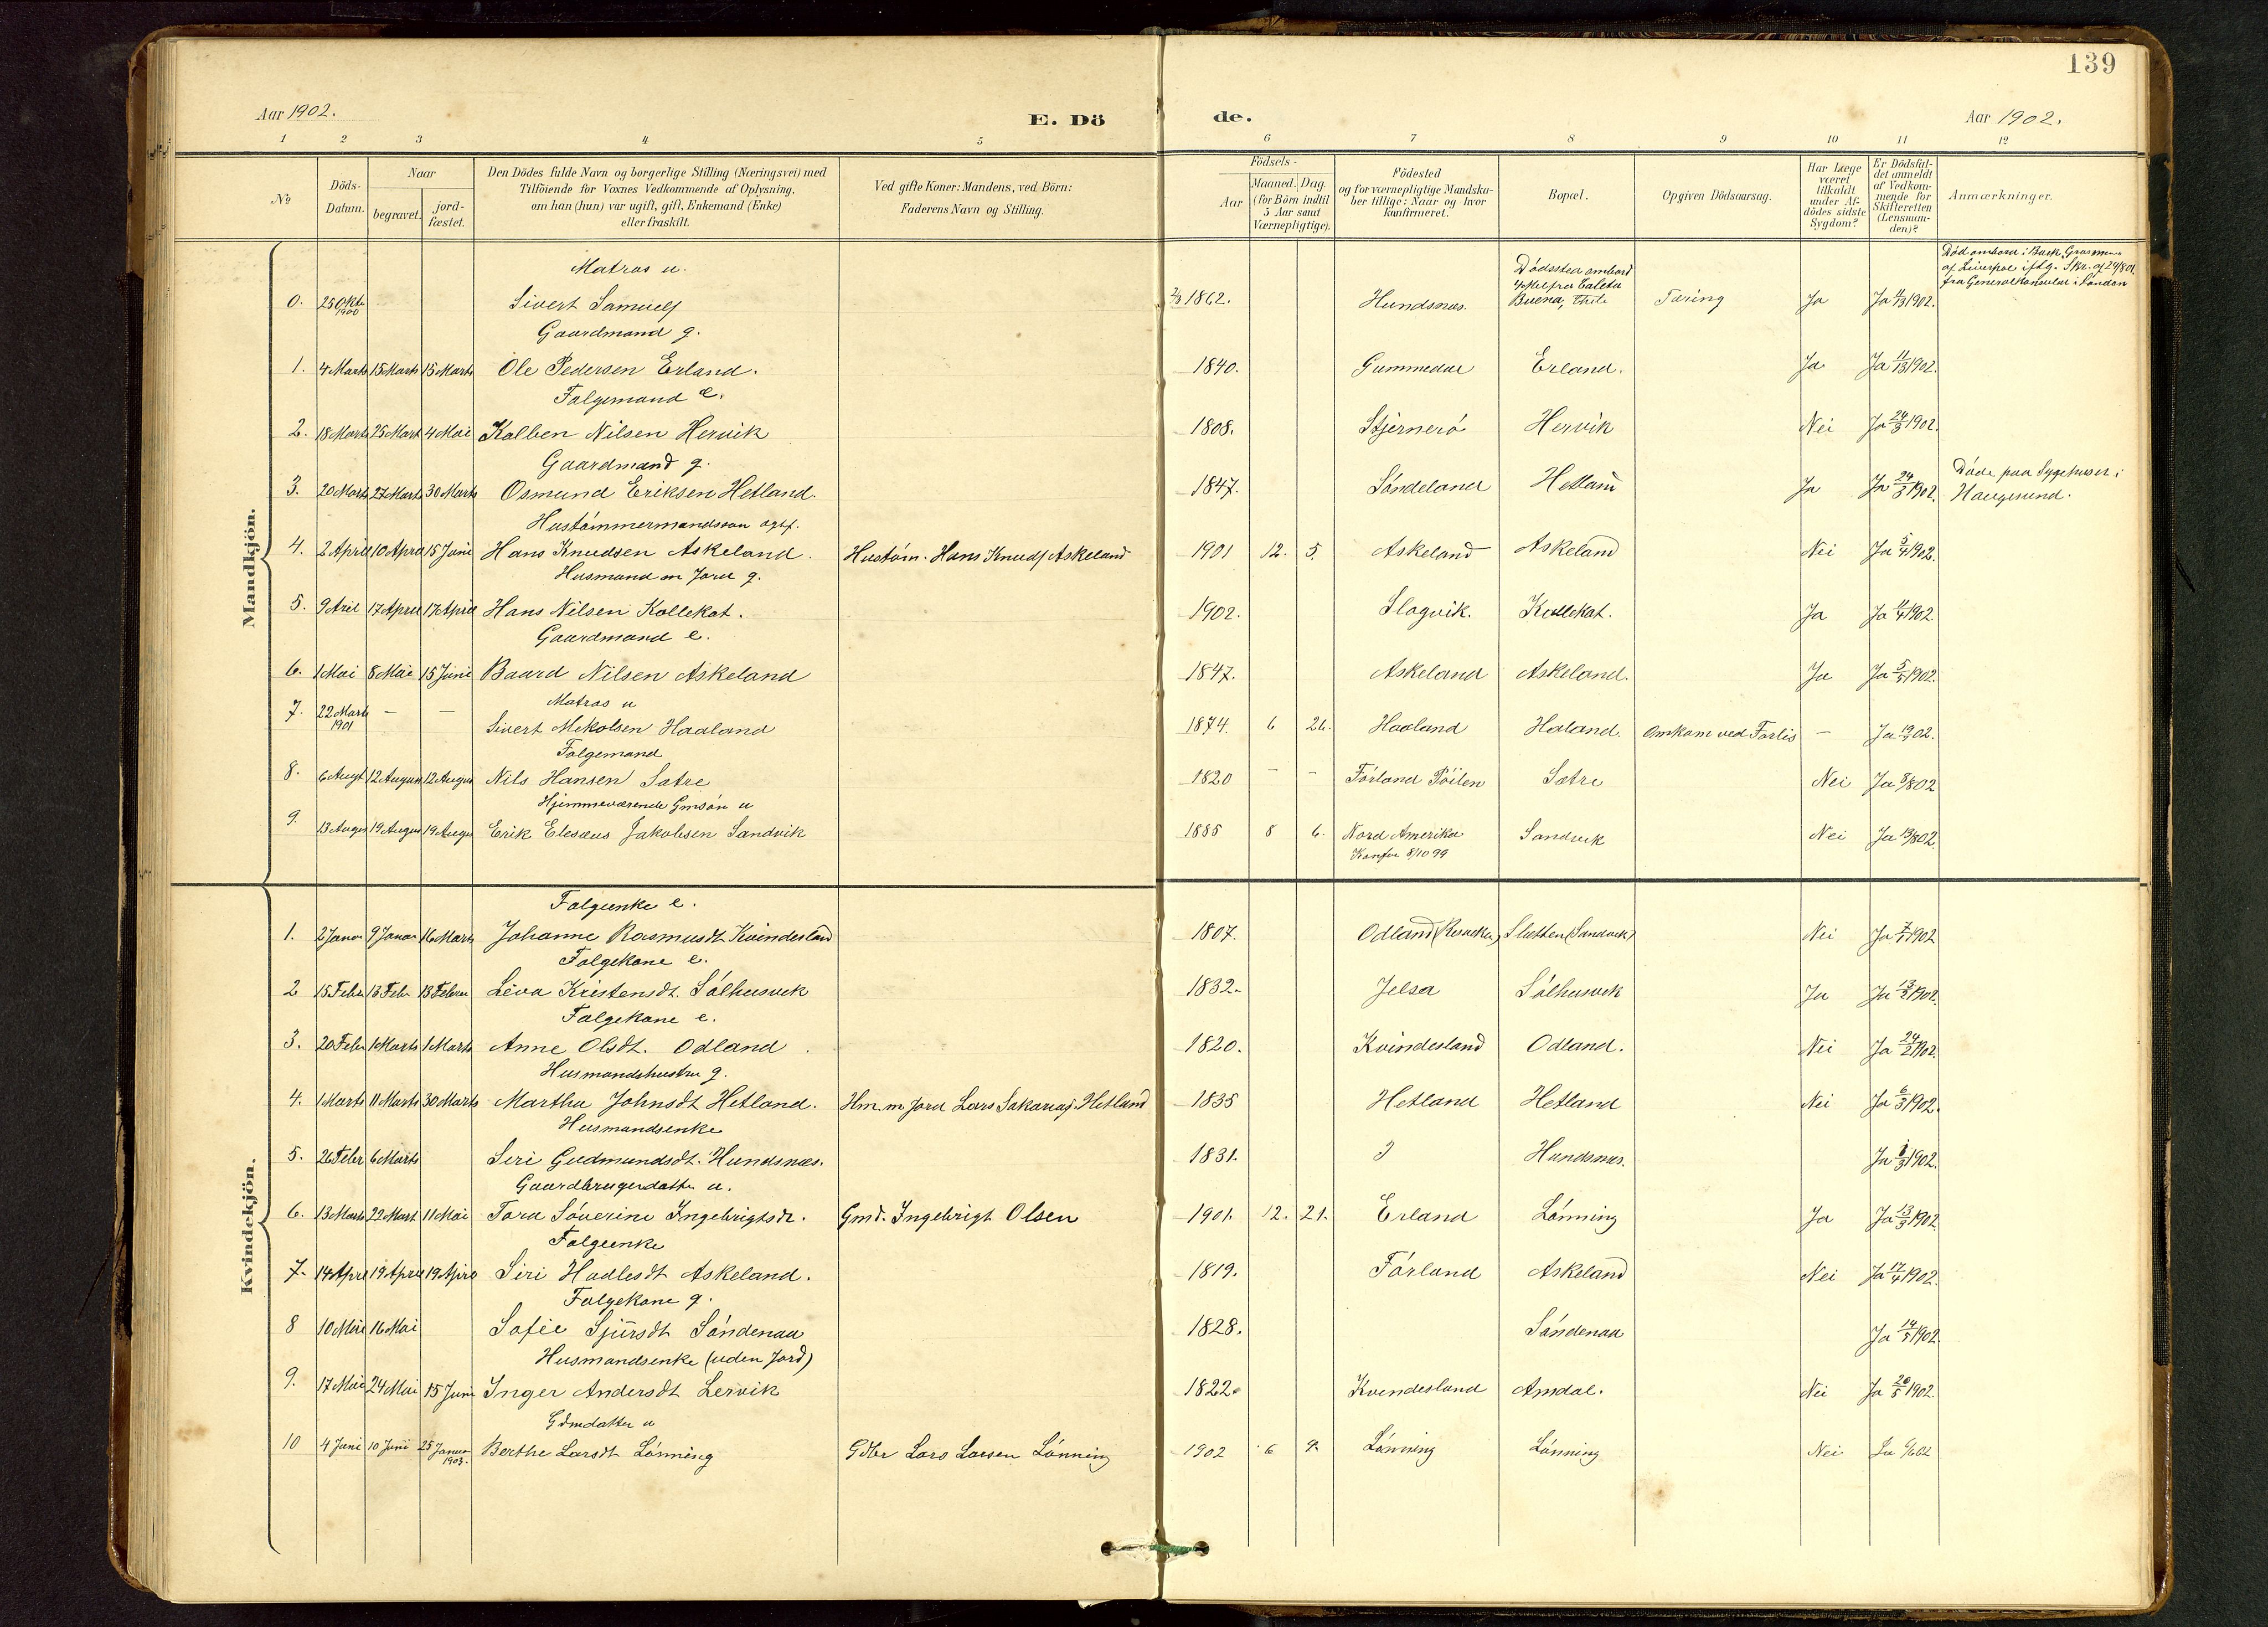 139
Aar 1902. E. Dö de. Aar 1902.
1 2 3 4 5 6 7 8 9 10 11 12
№ Döds-Datum. Naar begravet. jord-fæstet. Den Dödes fulde Navn og borgerlige Stilling (Næringsvei) med Tilföiende for Voxnes Vedkommende af Oplysning, om han (hun) var ugift, gift, Enkemand (Enke) eller fraskilt. Ved gifte Koner: Mandens, ved Börn: Faderens Navn og Stilling. Födsels- Aar Maaned. Dag. (for Börn indtil 5 Aar samt Værnepligtige). Födested og for værnepligtige Mandskaber tillige: Naar og hvor konfirmeret. Bopæl. Opgiven Dödsaarsag. Har Læge været tilkaldt under Afdödes sidste Sygdom? Er Dödsfaldet anmeldt af Vedkommende for Skifteretten (Lensmanden)? Anmærkninger.
Mandkjön.
Matros u.
0. 25 Okto 1900 Sivert Samuels 2/3 1862. Hundsnæs. Dödssted ombord 4 Mil fra Caleta Buena, Chile Tæring Ja Ja 11/3 1902. Död ombord i Bark Grasmere af Liverpol iflg. Skr. af 24/8 01 fra Generalkonsulat i London
Gaardmand g.
1. 4 Marts 15 Marts 15 Marts Ole Pedersen Erland. 1840. Gummedal Erland. Ja Ja 11/3 1902.
Folgemand e.
2. 18 Marts 25 Mart 4 Mai Kolben Nilsen Hervik 1808. Stjernerö Hervik Nei Ja 24/3 1902.
Gaardmand g.
3. 20 Marts 27 Marts 30 Marts Osmund Eriksen Hetland. 1847. Söndeland Hetland Ja Ja 24/3 1902. Döde paa Sygehuset i Haugesund.
Hustömmermandssön
4. 2 April 10 April 15 Juni Hans Knudsen Askeland. Hustöm. Hans Knuds Askeland 1901 12. 5. Askeland Askeland Nei Ja 5/4 1902.
Husmand m Jord g.
5. 9 Aril 17 April 17 April Hans Nilsen Kollekat. 1902. Slogvik. Kollekat. Ja Ja 11/4 1902.
Gaardmand e.
6. 1 Mai 8 Mai 15 Juni Baard Nilsen Askeland 1847. Askeland Askeland. Ja Ja 5/5 1902.
Matros u
7. 22 Marts 1901 — — Sivert Mikalsen Haaland 1874. 6 26. Haaland Haland. Omkom ved Forlis —
Folgemand
8. 6 Augt 12 August 12 Augu Nils Hansen Sætre 1820 - - Förland Söilen Sætre Nei Ja 8/8 02
Hjemmeværende Gmsön u
9. 13 Augus 19 Augus 19 Augu Erik Elesæus Jakobsen Sandvik 1885 8 6. Nord Amerika Konfir 8/10 99 Sandvik Nei Ja 13/8 02.
Kvindekjön.
Folgeenke e.
1. 2 Janar 9 Janar 16 Marts Johanne Rasmusdt Kvindesland 1807. Odland Sletten (Sandvik) Nei Ja 7/1 1902
Folgekone e.
2 15 Febr 13 Febr 13 Febru Leva Kristensdt. Sölhusvik 1832. Jelsa Sölhusvik Ja Ja 13/2 1902.
Folgekone e.
3. 20 Febr 1 Marts 1 Marts Anne Olsdt. Odland 1820. Kvindesland Odland. Nei Ja 24/2 1902.
Husmandshustru g.
4. 1 Marts 11 Marts 30 Marts Martha Johnsdt Hetland. Hm. m Jord Lars Sakarias. Hetland 1835 Hetland Hetland Nei Ja 6/3 1902.
Husmandsenke
5. 26 Febr 6 Marts Siri Gudmundsdt. Hundsnæs. 1831. Hundsnæs.
Gaardbrugerdatter u.
6. 13 Marts 22 Mart 11 Mai Tora Söverine Ingebrigtsdt. Gmd. Ingebrigt Olsen 1901. 12. 21. Erland Lönning Ja Ja 13/3 1902
Folgeenke
7. 14 Apri 19 April 19 April Siri Hadlesdt Askeland. 1819. Förland Askeland Nei Ja 17/4 1902.
Folgekone g.
8 10 Mai 16 Mai Sofie Sjursdt Söndenaa 1828. Söndenaa Ja 14/5 1902.
Husmandsenke (uden Jord)
9. 17 Mai 24 Mai 15 Juni Inger Andersdt Lervik 1822. Kvindesland Amdal. Nei Ja 20/5 1902.
Gdmdatter u
10 4 Juni 10 Juni 25 Januar 1903. Berthe Larsdt Lönning Gdbr Lars Larsen Lönning 1902 6 Lönning Lönning Nei Ja 6/6 02